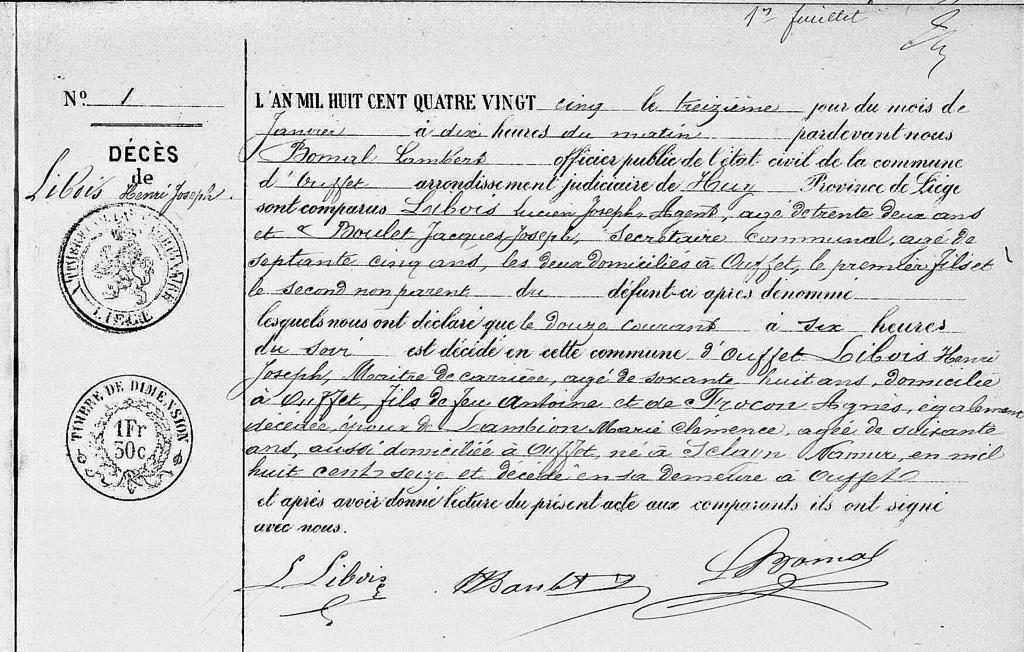 1er Juillet
Nº 1
DÉCÈS
de
Libois Henri Joseph.
LIÉGE
TIMBRE DE DIMENSION
1Fr
30c.
L'AN MIL HUIT CENT QUATRE VINGT cinq le treizième jour du mois de
Janvier à dix heures du matin pardevant nous
Bomal Lambert officier public de l'état civil de la commune
d'Ouffet arrondissement judiciaire de Huy Province de Liége
sont comparus Libois Lucien Joseph, Agent, agé de trente deux ans
et Boulet Jacques Joseph, Secrétaire Communal, agé de
septante cinq ans, les deux domiciliés à Ouffet, le premier fils et
le second non parent du défunt-ci après dénommé
lesquels nous ont déclaré que le douze courant à six heures
du soir est décédé en cette commune d'Ouffet Libois Henri
Joseph, Maître de carrière, agé de soixante huit ans, domicilié
à Ouffet, fils de feu Antoine et de Trocon Agnès, également
décédée, époux de Lambion Marie Clémence, agée de soixante
ans, aussi domiciliée à Ouffet, né à Sclain Namur, en mil
huit cent seize et décédé en sa demeure à Ouffet
et après avoir donné lecture du présent acte aux comparants ils ont signé
avec nous.
L Libois Boulet L Bomal